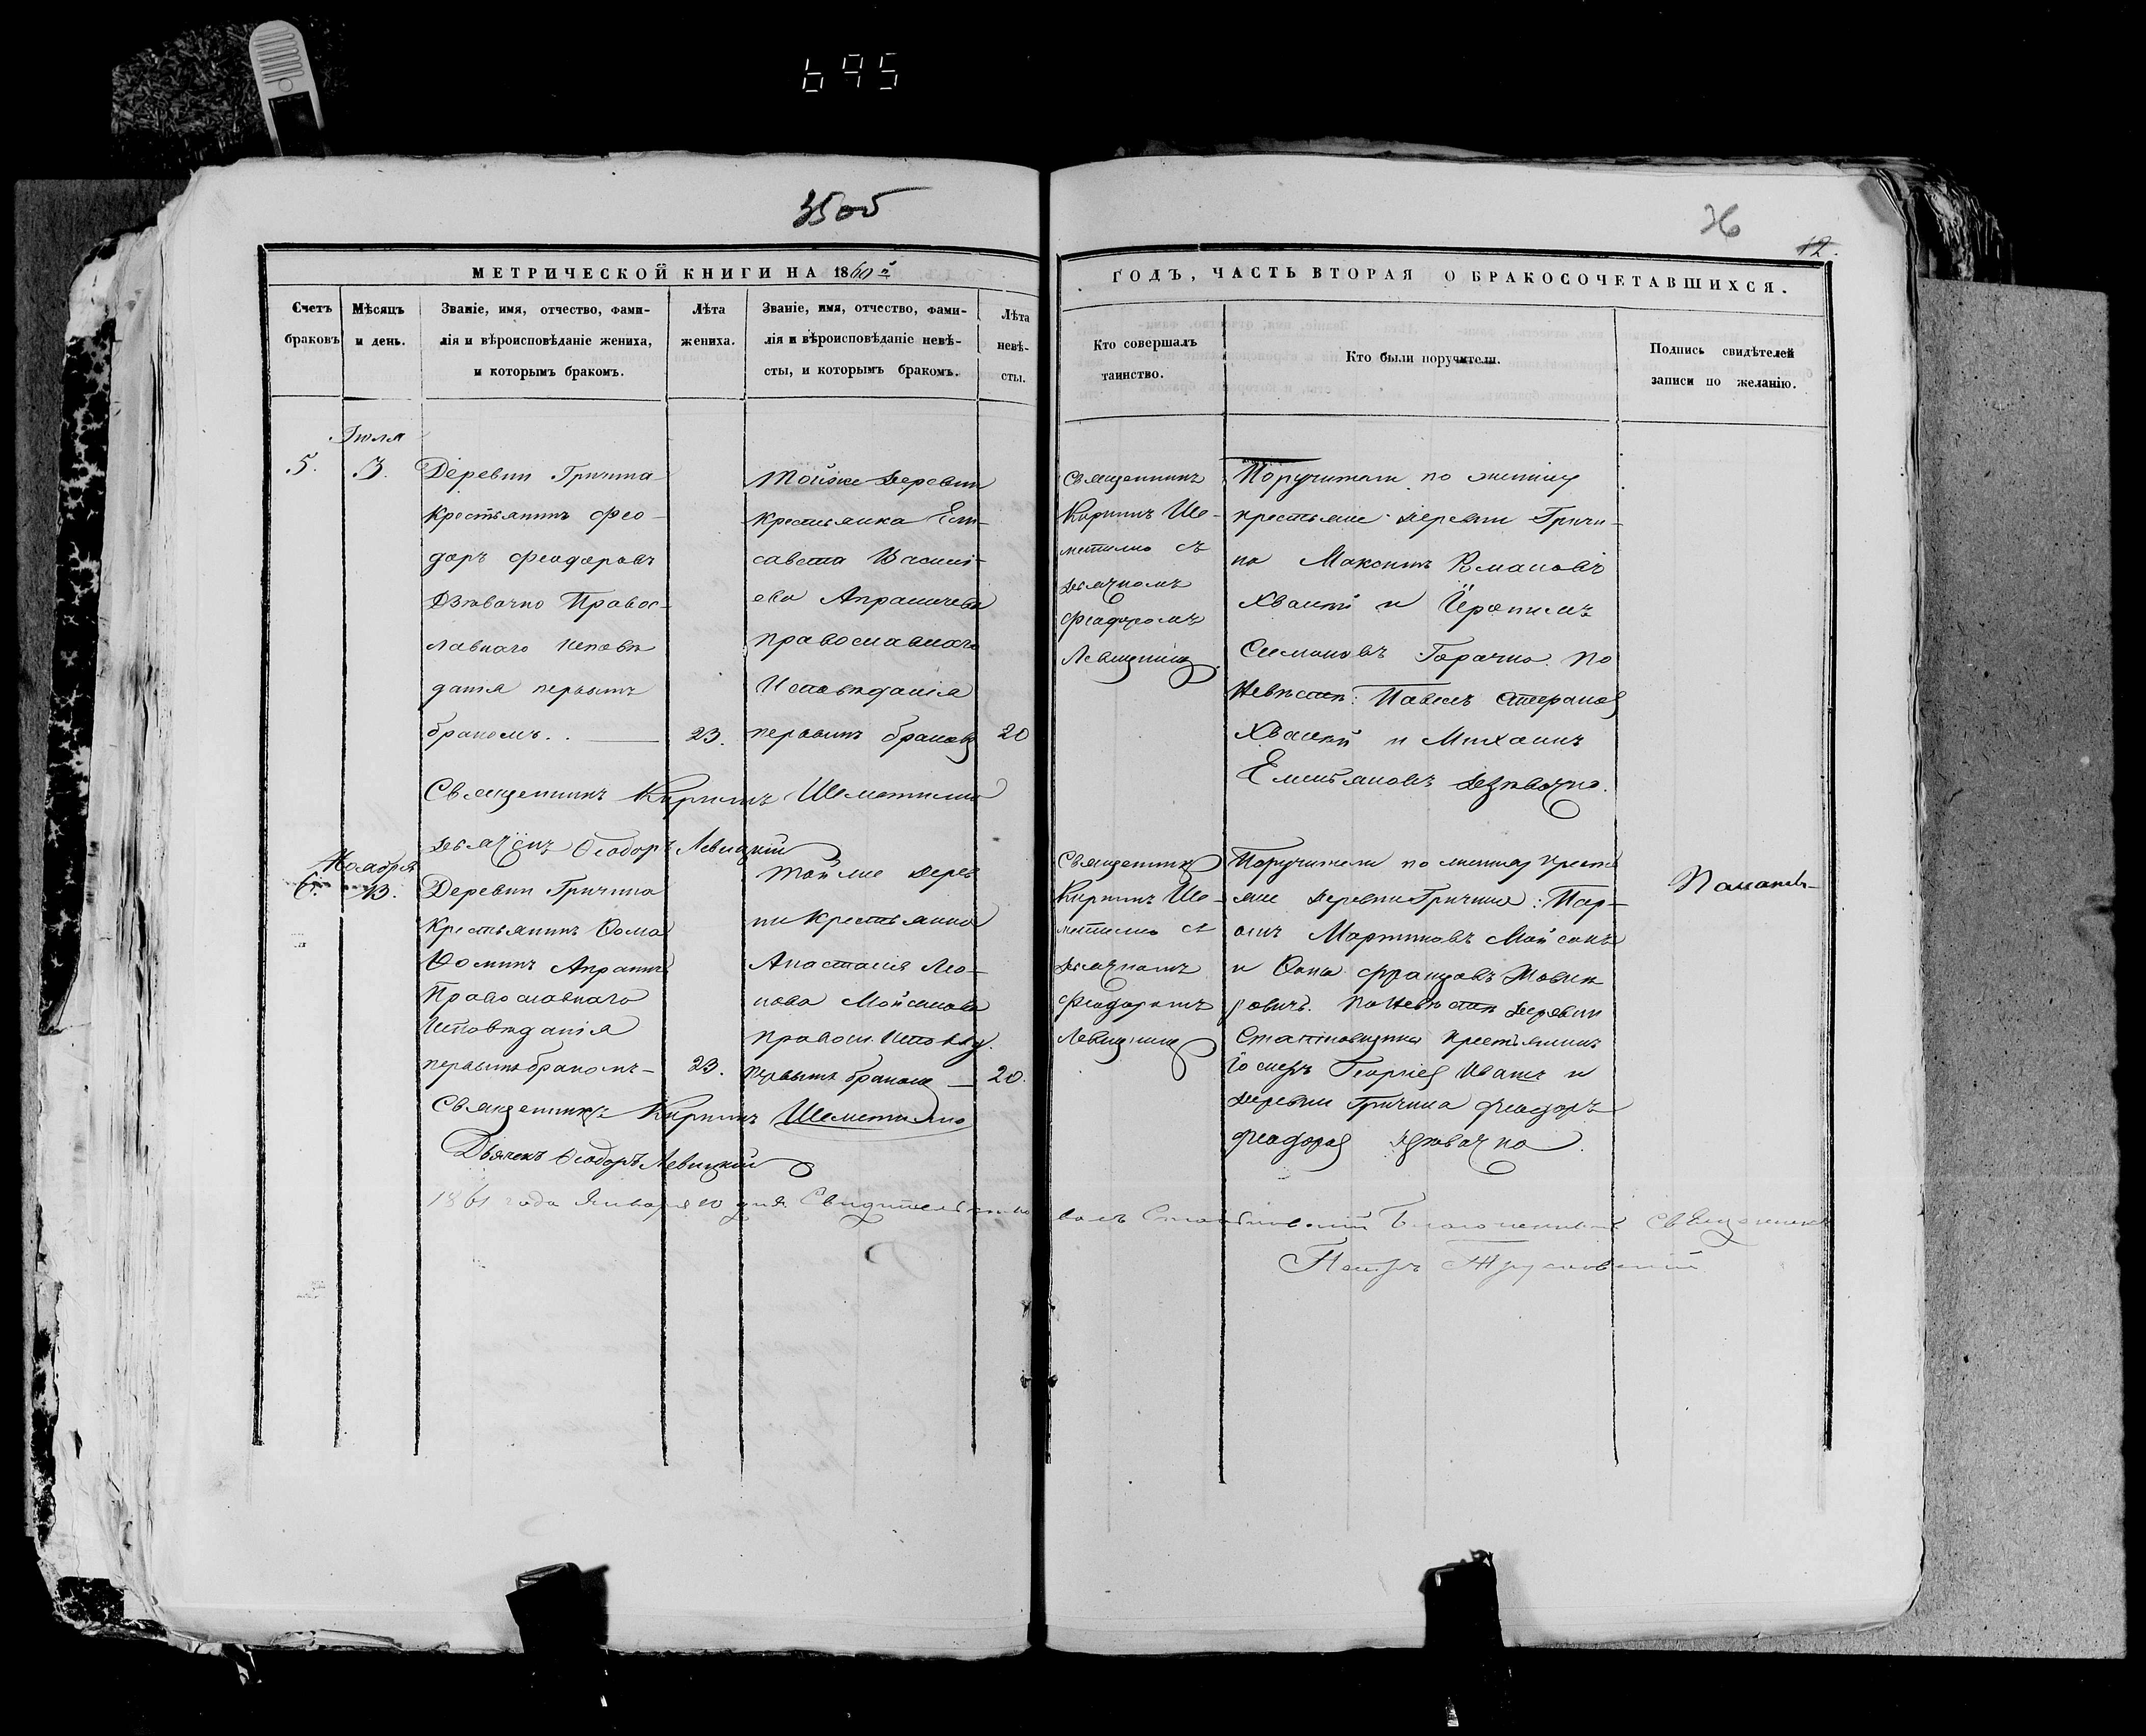 695
35об
36
12.
МЕТРИЧЕСКОЙ КНИГИ НА 1860й
ГОДЪ, ЧАСТЬ ВТОРАЯ О БРАКОСОЧЕТАВШИХСЯ.
Счетъ
браковъ
Мѣсяцъ
и день.
Званіе, имя, отчество, фами-
лія и вѣроисповѣданіе жениха,
и которымъ бракомъ.
Лѣта
жениха.
Званіе, имя, отчество, фами-
лія и вѣроисповѣданіе невѣ-
сты, и которымъ бракомъ.
Лѣта
невѣ-
сты.
Кто совершалъ
таинство.
Кто были поручители.
Подпись свидѣтелей
записи по желанію.
Іюля
5.
3.
Деревни Гричина
Крестьянинъ Фео-
доръ Феодоровъ
Дзѣвачко Правос-
лавнаго Исповѣ
данія первымъ
бракомъ.
23.
Тойже деревни
Крестьянка Ели-
савета Васил-
ева
православнаго
Исповѣданія
первымъ бракомъ
20
Священникъ
Кириллъ Ше-
метилло съ
дьячкомъ
Феодоромъ
Левицкимъ
Поручители по жениху
крестьяне деревни Гричи-
на Максимъ Романовъ
Хвалей и
Симоновъ Горачко. По
Невѣстѣ: Павелъ Стефановъ
Хвалей и Михаилъ
Емельяновъ Дзѣвачко.
Священникъ Кириллъ Шеметилло
дьячокъ Ѳеодоръ Левицкій
Ноября
6.
13.
Деревни Гричина
Крестьянинъ Ѳома
Ѳоминъ
Православнаго
Исповѣданія
первымъ бракомъ
23.
Той же дерев
ни крестьянка
Анастасія Лео-
нова
правосл. Исповѣд.
первымъ бракомъ
20.
Священникъ
Кириллъ Ше-
метилло съ
дьячкомъ
Феодоромъ
Левицкимъ
Поручители по жениху кресть
яне деревни Гричина:
Мартиновъ
и Ѳома Францовъ
По Невѣстѣ деревни
крестьянинъ
Іосифъ Георгіевъ Ивашъ и
деревни Гричина Феодоръ
Феодоровъ Дзѣвачко.
Священникъ Кириллъ Шеметилло
Дьячекъ Ѳеодоръ Левицкій
1861 года Января 10 дня Свидѣтельство
валъ Благочинный Священникъ
Петръ